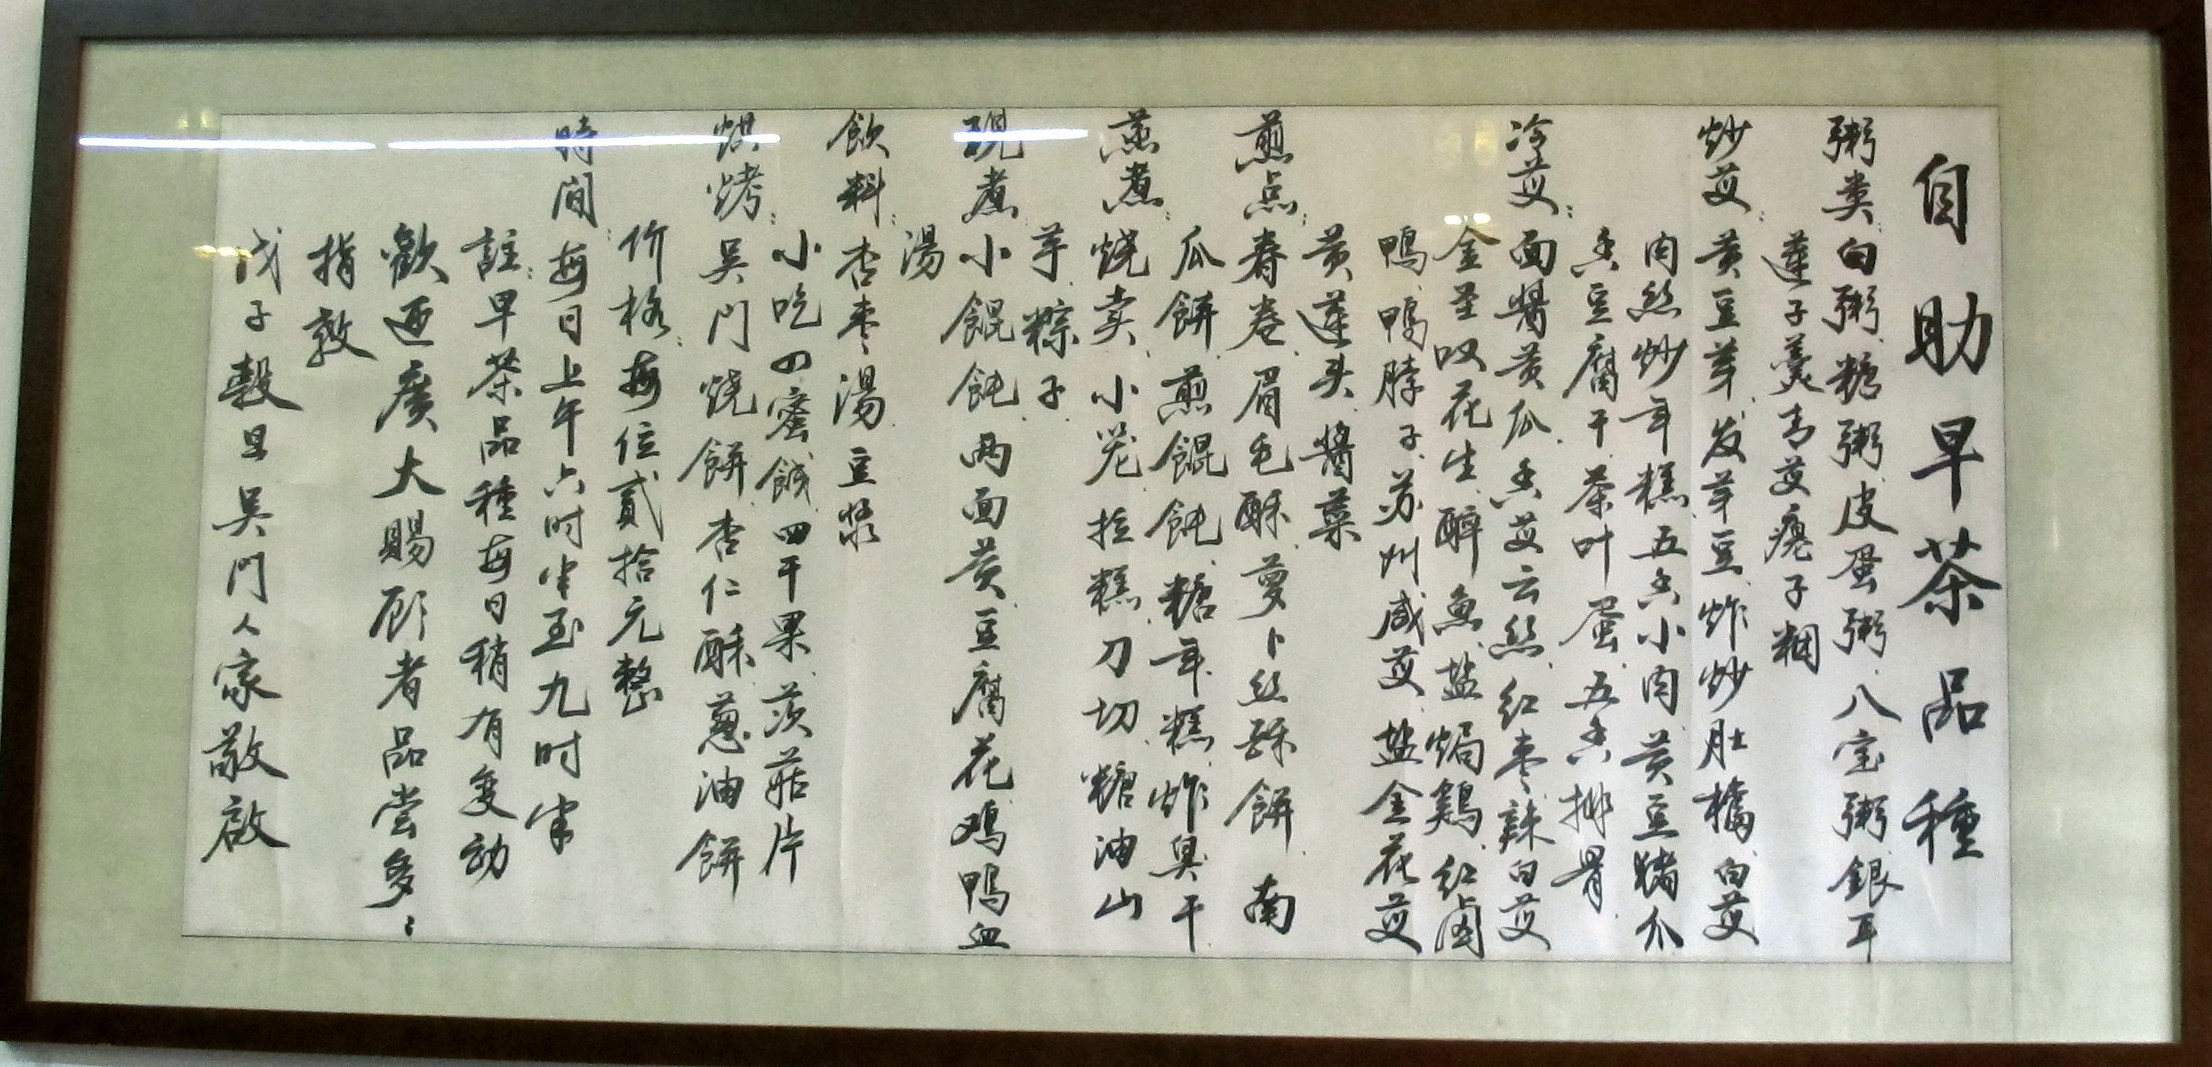 自助早茶品種
粥类:白粥、糖粥、皮蛋粥、八宝粥、銀耳
蓮子羹、青菜痩子粥
炒菜:黄豆芽、发芽豆、炸炒肚、橘、白菜
肉丝炒年糕、五香小肉、黄豆猪爪
香豆腐干、茶叶蛋、五香排骨
冷菜:面酱黄瓜、香菜云丝、红枣、辣白菜
金圣叹花生、醉魚、盐焗鷄、红卤
鴨、鴨脖子、苏州咸菜、盐金花菜
黄蓮头、醬菜
煎点:春卷、眉毛酥、萝卜丝酥餅、南
瓜餅、煎餛飩、糖年糕、炸臭干
蒸煮:烧卖、小笼、拉糕、刀切、糖油山
芋、粽子
現煮:小餛飩、两面黄、豆腐花、鸡鴨血
湯
飲料:杏枣湯、豆浆
小吃:四蜜餞、四干果、茨菇片
烘烤:吳门烧餅、杏仁酥、蔥油餅
价格:每位貳拾元整
時间:每日上午六时半至九时半
註:早茶品種每日稍有变动
歡迎廣大賜顾者品尝多多
指教
戊子穀旦吳門人家敬啟